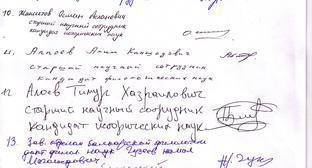 10. Жашитов Осман Асланович
старший научный сотрудник
кандидат исторических наук
11. Аппоев Алим Каншоович
старший научный сотрудник
кандидат филологических наук
12 Алоев Тимур Хазраилович
старший научный сотрудник
кандидат исторических наук
13. Зав. отделом балкарской филологии
докт. филол. наук Гузеев Жамал
Магомедович